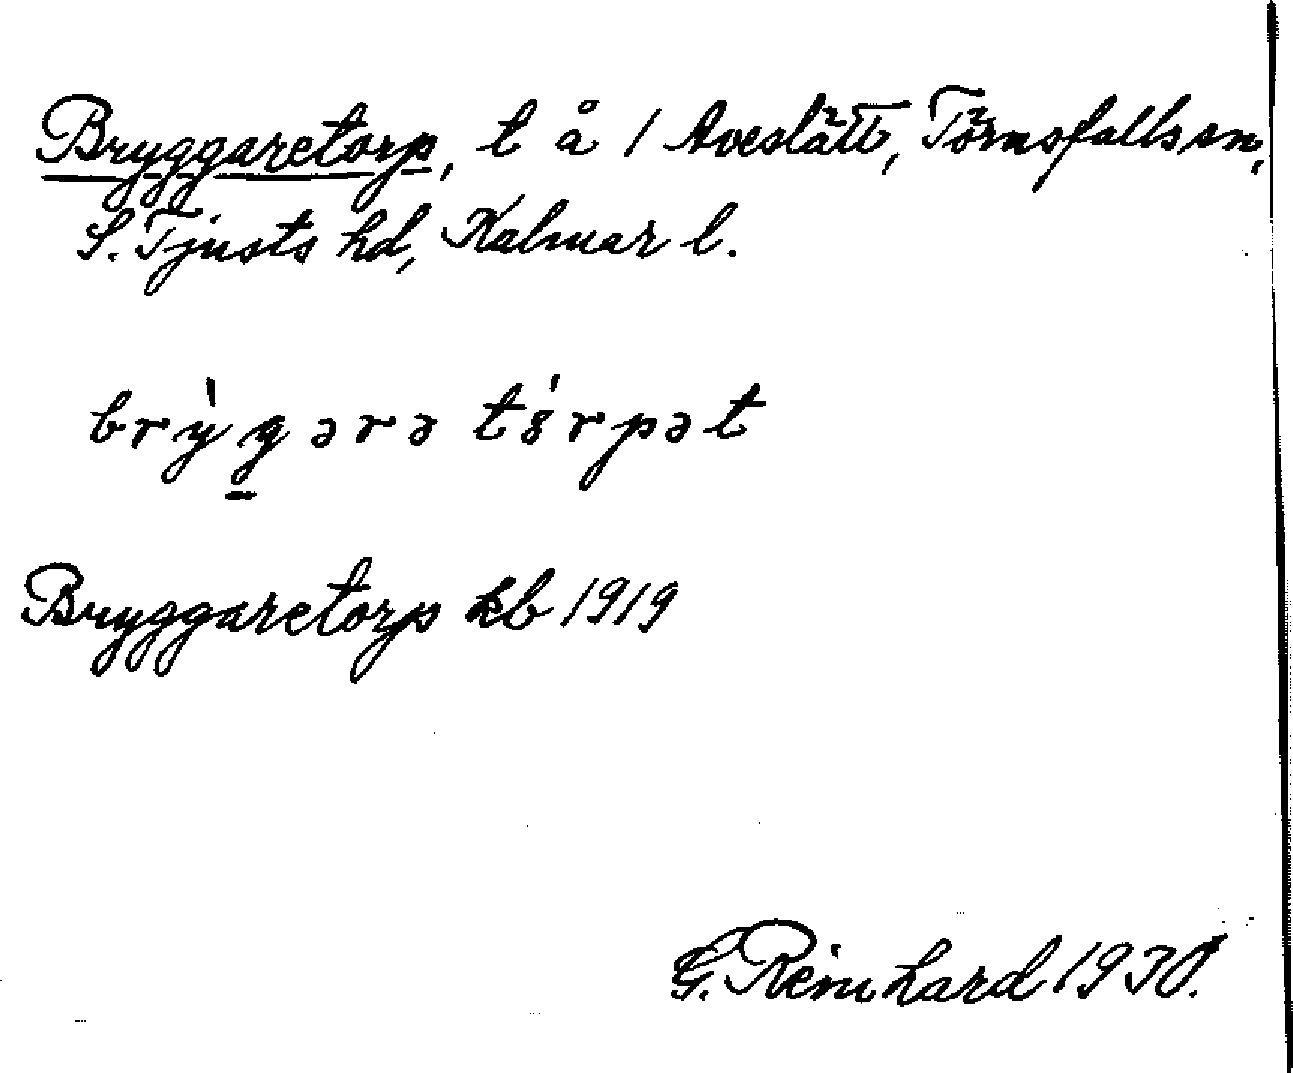 Bryggaretorp, t å 1 Aveslätt, Törnsfalls sn,
S. Tjusts hd, Kalmar l.
brỳgərə tórpət
Bryggaretorp kb 1919
G. Reinhard 1930.